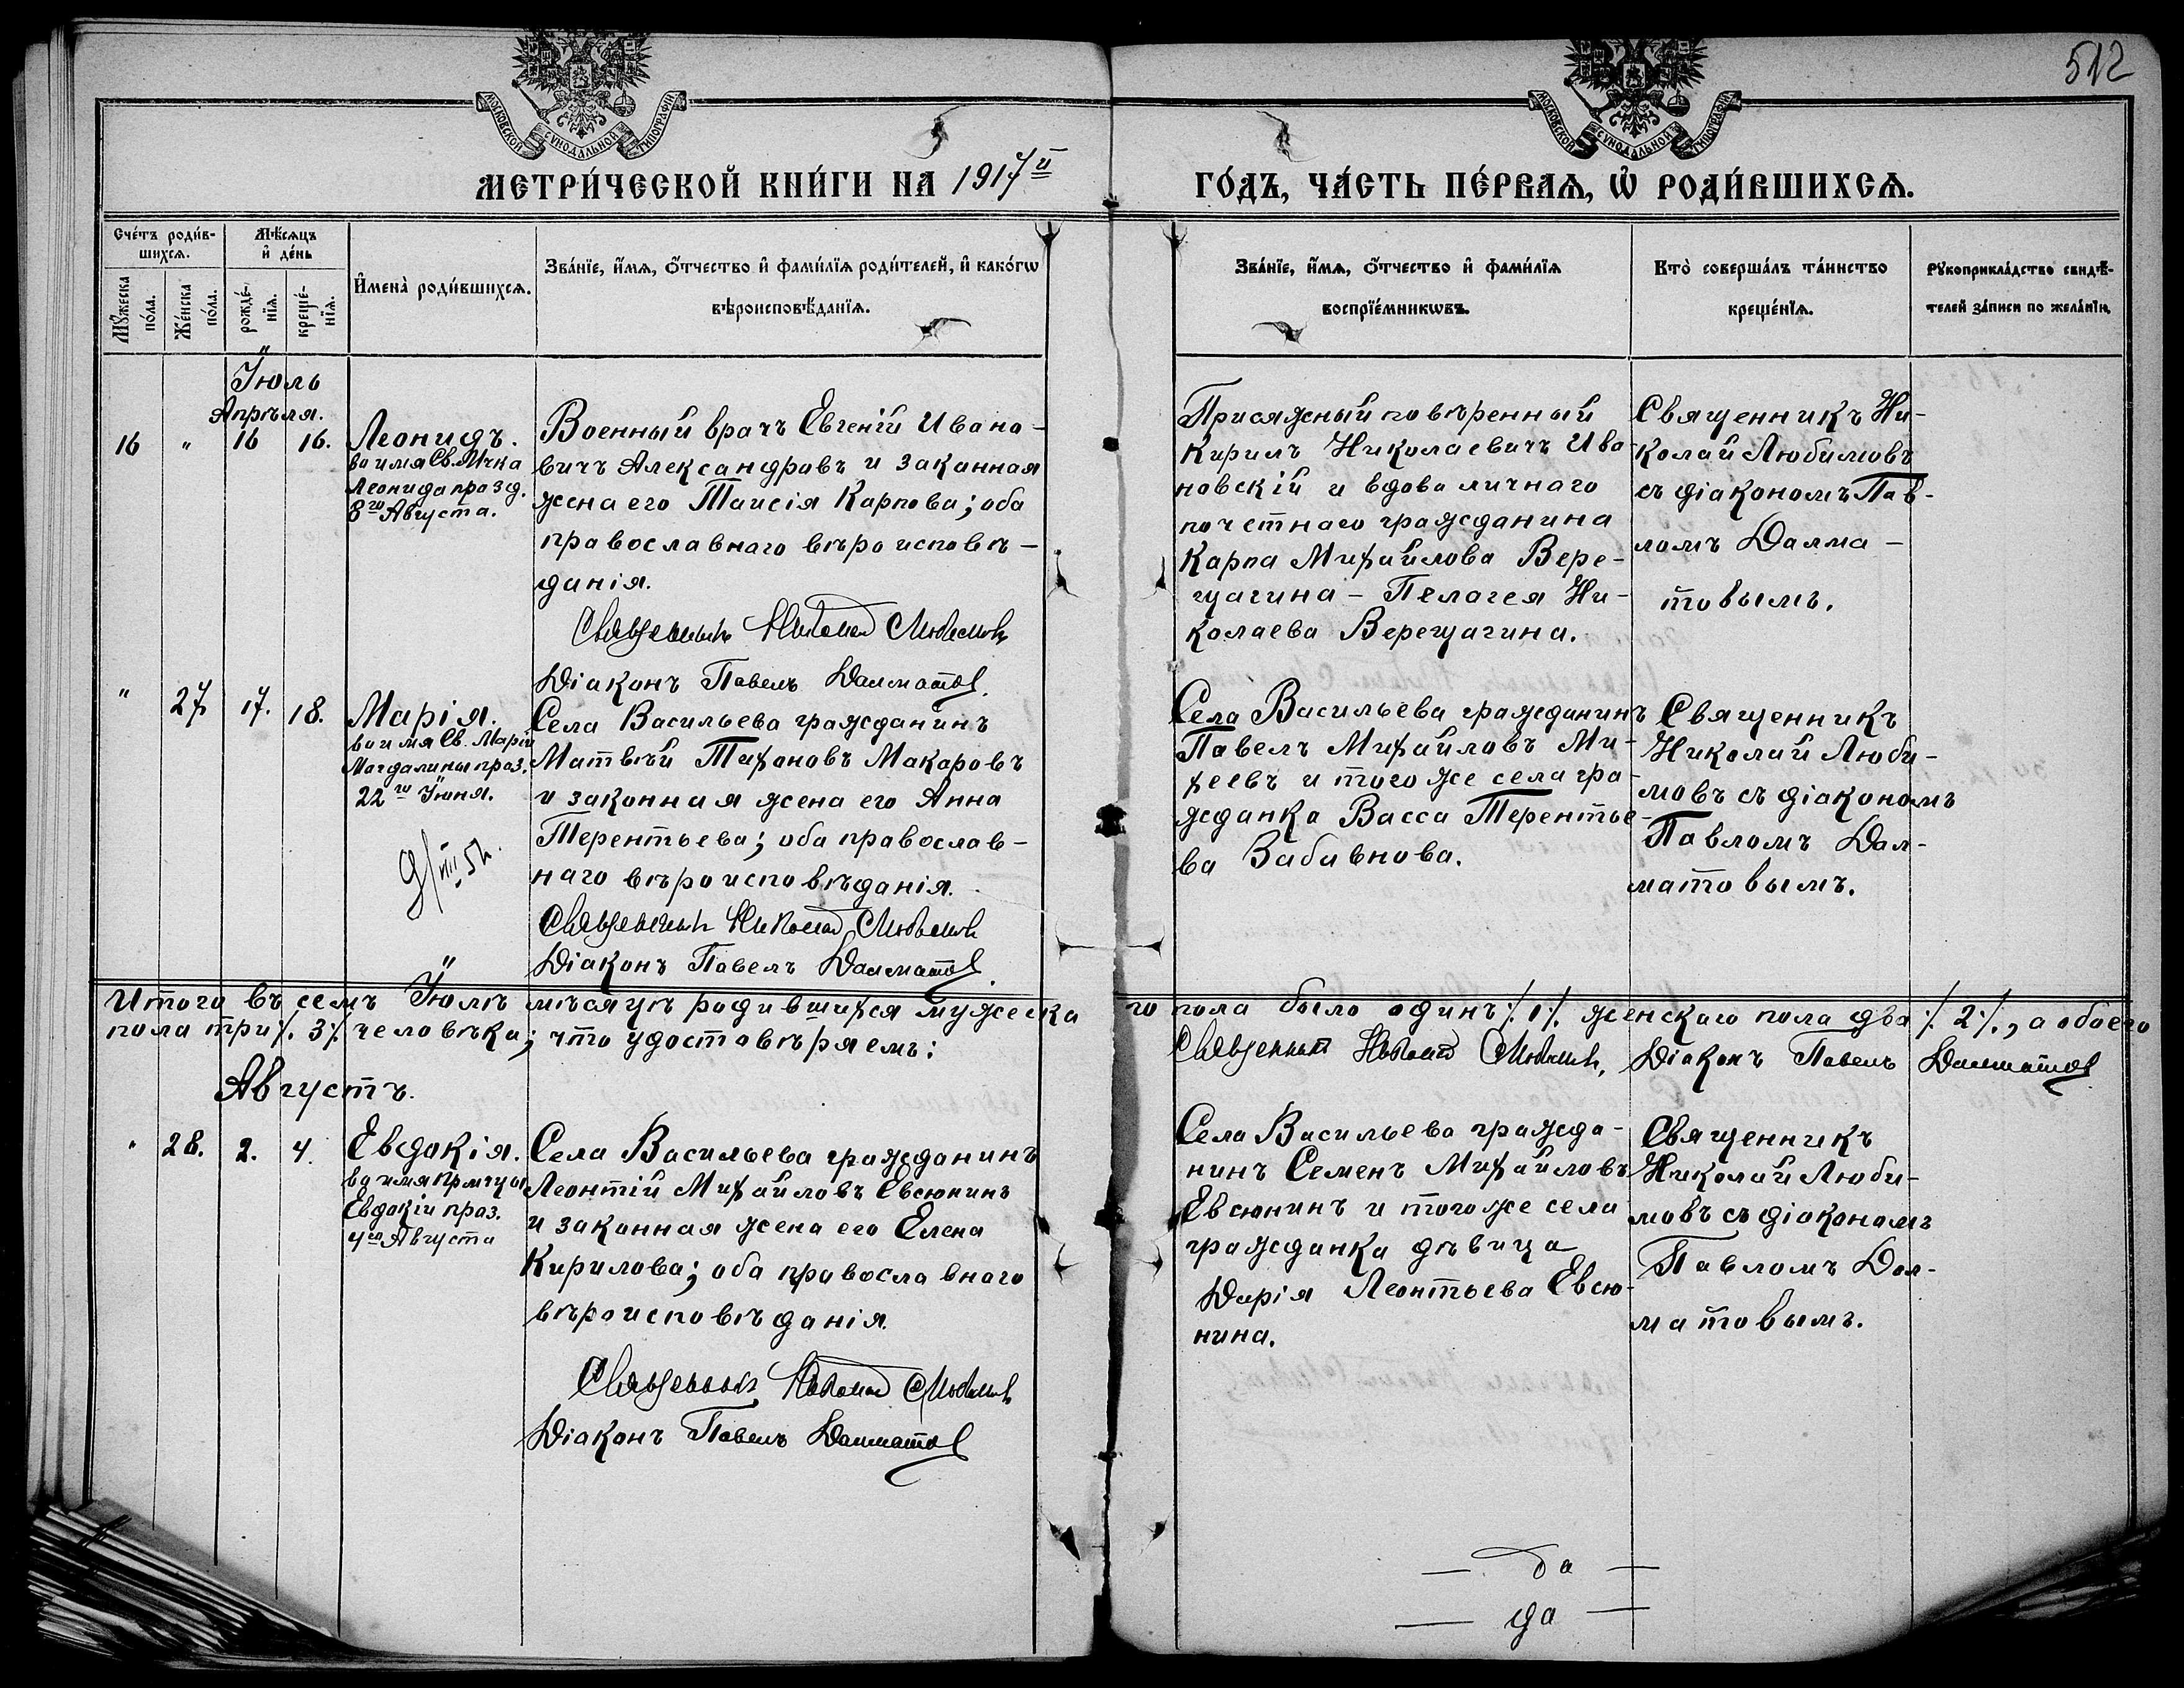 512
МОСКОВСКОЙ СУНОДАЛЬНОЙ ТИПОГРАФІИ
МОСКОВСКОЙ СУНОДАЛЬНОЙ ТИПОГРАФІИ
МЕТРИ́ЧЕСКОЙ КНИ́ГИ НА 1917й ГО́ДЪ, ЧА́СТЬ ПЕ́РВАѦ, Ѡ РОДИ́ВШИХСѦ.
Сче́тъ роди́в-
шихсѧ.
Мꙋ́жеска
по́ла.
Же́нска
по́ла.
Мѣ́сѧцъ
и҆ де́нь
рожде́-
нїѧ.
креще́-
нїѧ.
И҆мена̀ роди́вшихсѧ.
Зва́нїе, и҆́мѧ, ѻ҆́тчество и҆ фами́лїѧ роди́телей, и҆ како́гѡ
вѣроисповѣ́данїѧ.
Зва́нїе, и҆́мѧ, ѻ҆́тчество и҆ фами́лїѧ
воспрїе́мникѡвъ.
Кто̀ соверша́лъ та́инство
креще́нїѧ.
Рꙋкоприкла́дство свидѣ́-
телей за́писи по жела́нїю.
Іюль
Апрѣля.
16 " 16 16.
Леонидъ.
во имя Св. Мчка
Леонида празд.
8го Августа.
Военный врачъ Евгеній Ивано-
вичъ Александровъ и законная
жена его Таисія Карпова; оба
православнаго вѣроисповѣ-
данія.
Священникъ Николай Любимовъ
Діаконъ Павелъ Далматов.
Присяжный повѣренный
Кирилъ Николаевичъ Ива-
новскій и вдова личнаго
почетнаго гражданина
Карпа Михайлова Вере-
щагина - Пелагея Ни-
колаева Верещагина.
Священникъ Ни-
колай Любимовъ
съ діакономъ Пав-
ломъ Далма-
товымъ.
" 27. 17. 18.
Марія.
во имя Св. Маріи
Магдалины праз.
22го Іюня.
Села Васильева гражданинъ
Матвѣй Тихоновъ Макаровъ
и законная жена его Анна
Терентьева; оба православ-
наго вѣроисповѣданія.
Священникъ Николай Любимовъ
Діаконъ Павелъ Далматов.
Села Васильева гражданинъ
Павелъ Михайловъ Ми-
хеевъ и того же села гра-
жданка Васса Терентье-
ва Забивнова.
Священникъ
Николай Люби-
мовъ съ діакономъ
Павломъ Дал-
матовымъ.
Итого въ семъ Іюлѣ мѣсяцѣ родившихся мужеска го пола было одинъ ⁒ 1 ⁒ женскаго пола два ⁒ 2 ⁒, а обоего
пола три ⁒ 3 ⁒ человѣка; что удостовѣряемъ: Священникъ Николай Любимовъ, Діаконъ Павелъ Далматов
Августъ.
" 28. 2. 4.
Евдокія.
во имя Прмчцы
Евдокіи праз.
4го Августа
Села Васильева гражданинъ
Леонтій Михайловъ Евсюнинъ
и законная жена его Елена
Кирилова; оба православнаго
вѣроисповѣданія.
Священникъ Николай Любимовъ
Діаконъ Павелъ Далматов
Села Васильева гражда-
нинъ Семенъ Михайловъ
Евсюнинъ и того же села
гражданка дѣвица
Дарія Леонтьева Евсю-
нина.
Священникъ
Николай Люби-
мовъ съ діакономъ
Павломъ Дал-
матовымъ.
— да —
— да —